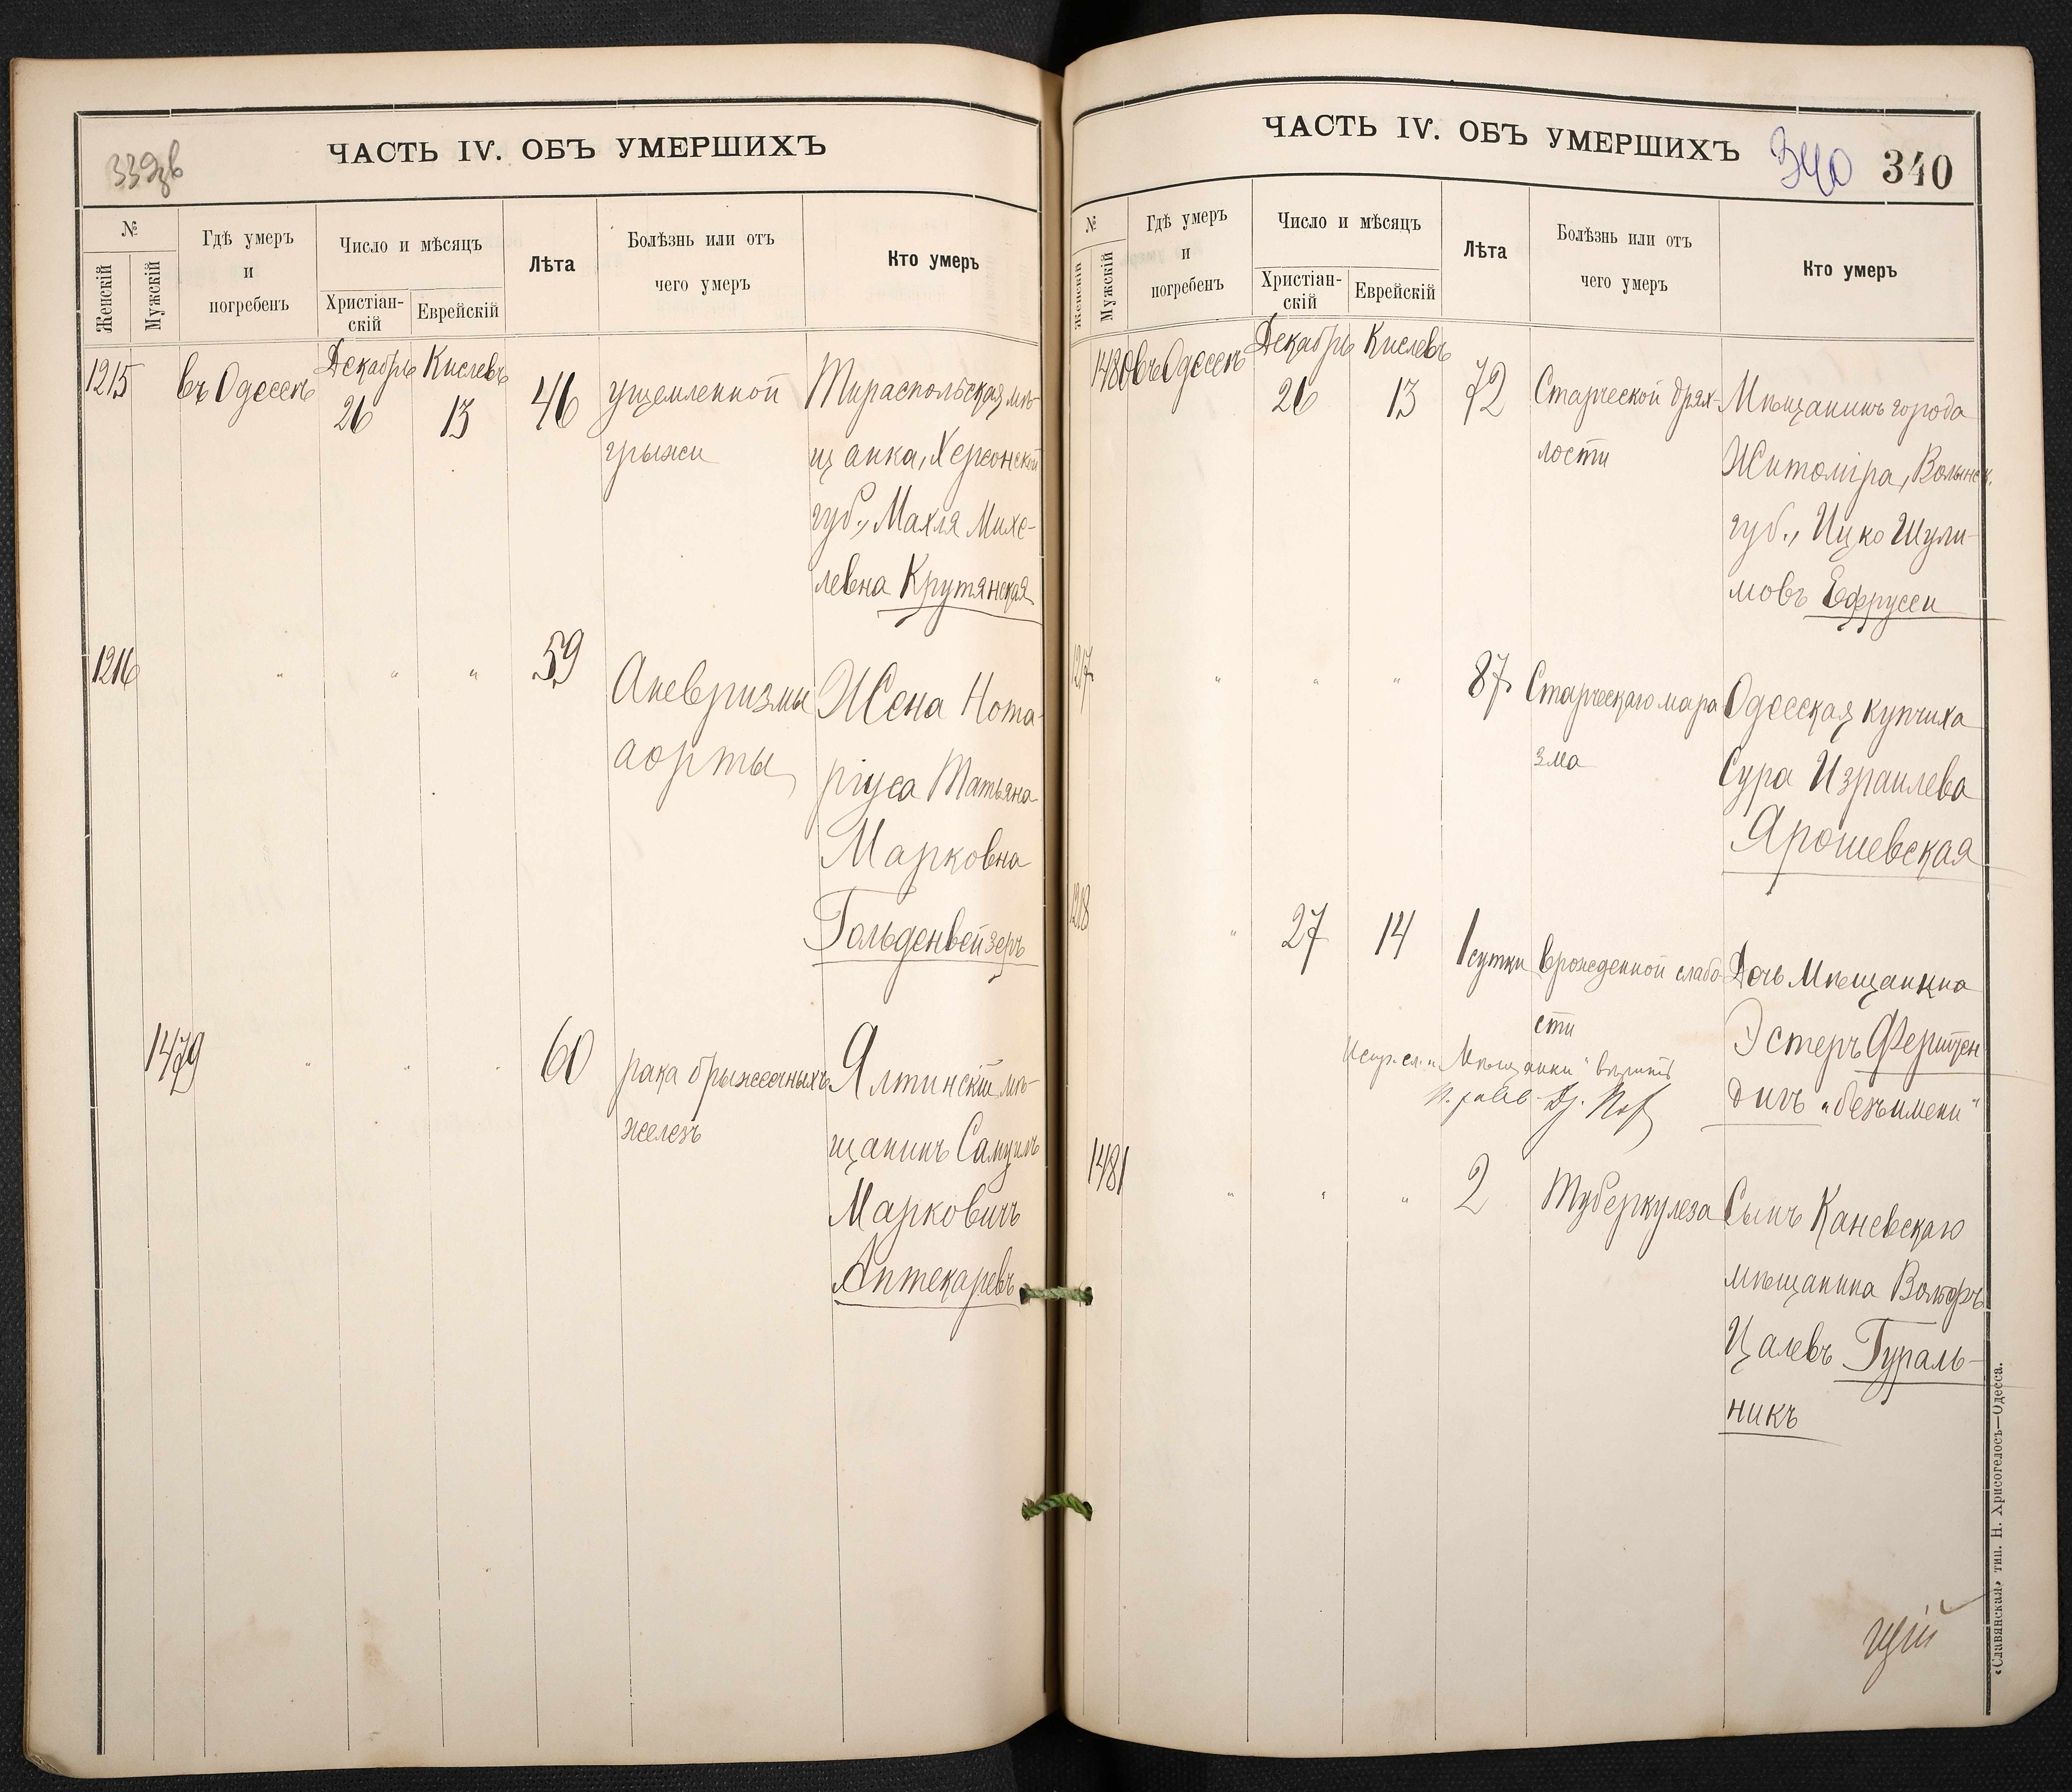 339зв
ЧАСТЬ IV. ОБЪ УМЕРШИХЪ
№
Женскій
Мужскій
Гдѣ умеръ
и
погребенъ
Число и мѣсяцъ
Христіан-
скій
Еврейскій
Лѣта
Болѣзнь или отъ
чего умеръ
Кто умеръ
1215 въ Одессѣ Декабрь Кислевъ
26 13 46 ущемленной Тираспольская мѣ-
грыжи щанка, Херсонской
губ., Махля Михе-
левна Крутянская
1216 " " " 59 Аневризмы Жена Нота-
аорты ріуса Татьяна
Марковна
Гольденвейзеръ
1479 " " " 60 рака брыжеечныхъ Ялтинскій мѣ-
железъ щанинъ Самуилъ
Марковичъ
Аптекаревъ
ЧАСТЬ IV. ОБЪ УМЕРШИХЪ 340 340
№
Женскій
Мужскій
Гдѣ умеръ
и
погребенъ
Число и мѣсяцъ
Христіан-
скій
Еврейскій
Лѣта
Болѣзнь или отъ
чего умеръ
Кто умеръ
1480 въ Одессѣ Декабрь Кислевъ
26 13 72 Старческой дрях- Мѣщанинъ города
лости Житоміра, Волынск.
губ., Ицко Шули-
мовъ Ефрусси
1217 " " " 87 Старческаго мара Одесская купчиха
зма Сура Израилева
Ярошевская
1218 " 27 14 1 сутки врожденной слабо- Дочь Мѣщанина
сти Эстеръ Ферштен
дигъ „безъ имени"
Испр. сл. „Мѣщанки" вѣрить
1481 " " " 2 Туберкулеза Сынъ Каневскаго
мѣщанина Вольфъ
Цалевъ Гураль-
никъ
щій
«Славянская» тип. Н. Хрисогелосъ—Одесса.